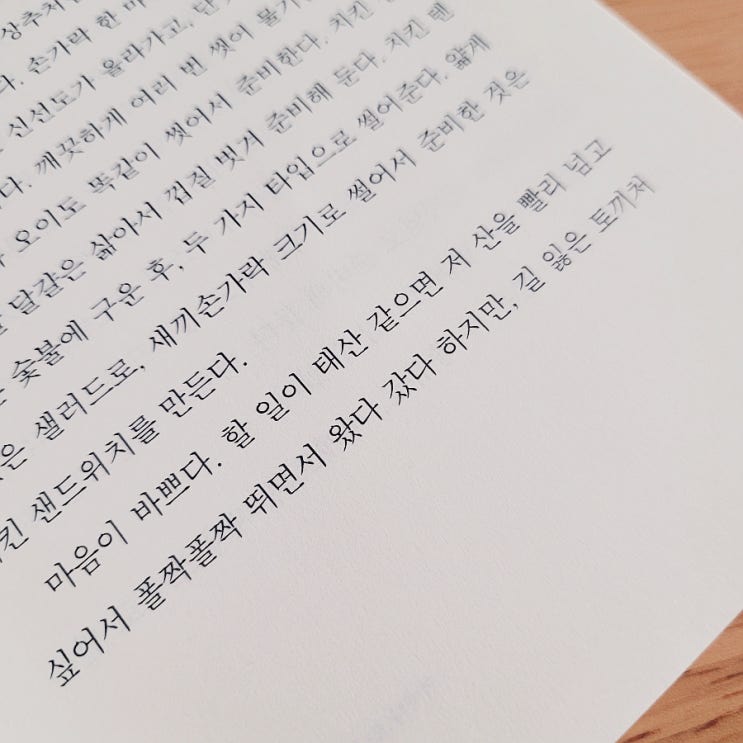 상추처
손가락 한 마
신선도가 올라가고, 단
깨끗하게 여러 번 씻어 물기
오이도 똑같이 씻어서 준비한다. 치킨
달걀은 삶아서 껍질 벗겨 준비해 둔다. 치킨 텐
숯불에 구운 후, 두 가지 타입으로 썰어준다. 얇게
은 샐러드로, 새끼손가락 크기로 썰어서 준비한 것은
킨 샌드위치를 만든다.
마음이 바쁘다. 할 일이 태산 같으면 저 산을 빨리 넘고
싶어서 폴짝폴짝 뛰면서 왔다 갔다 하지만, 길 잃은 토끼처